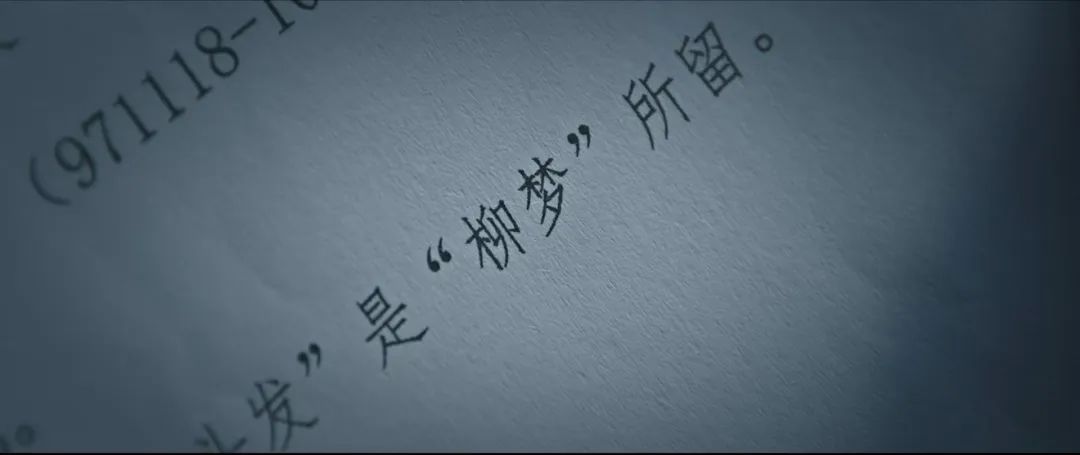 (971118-10
发”是“柳梦”所留。